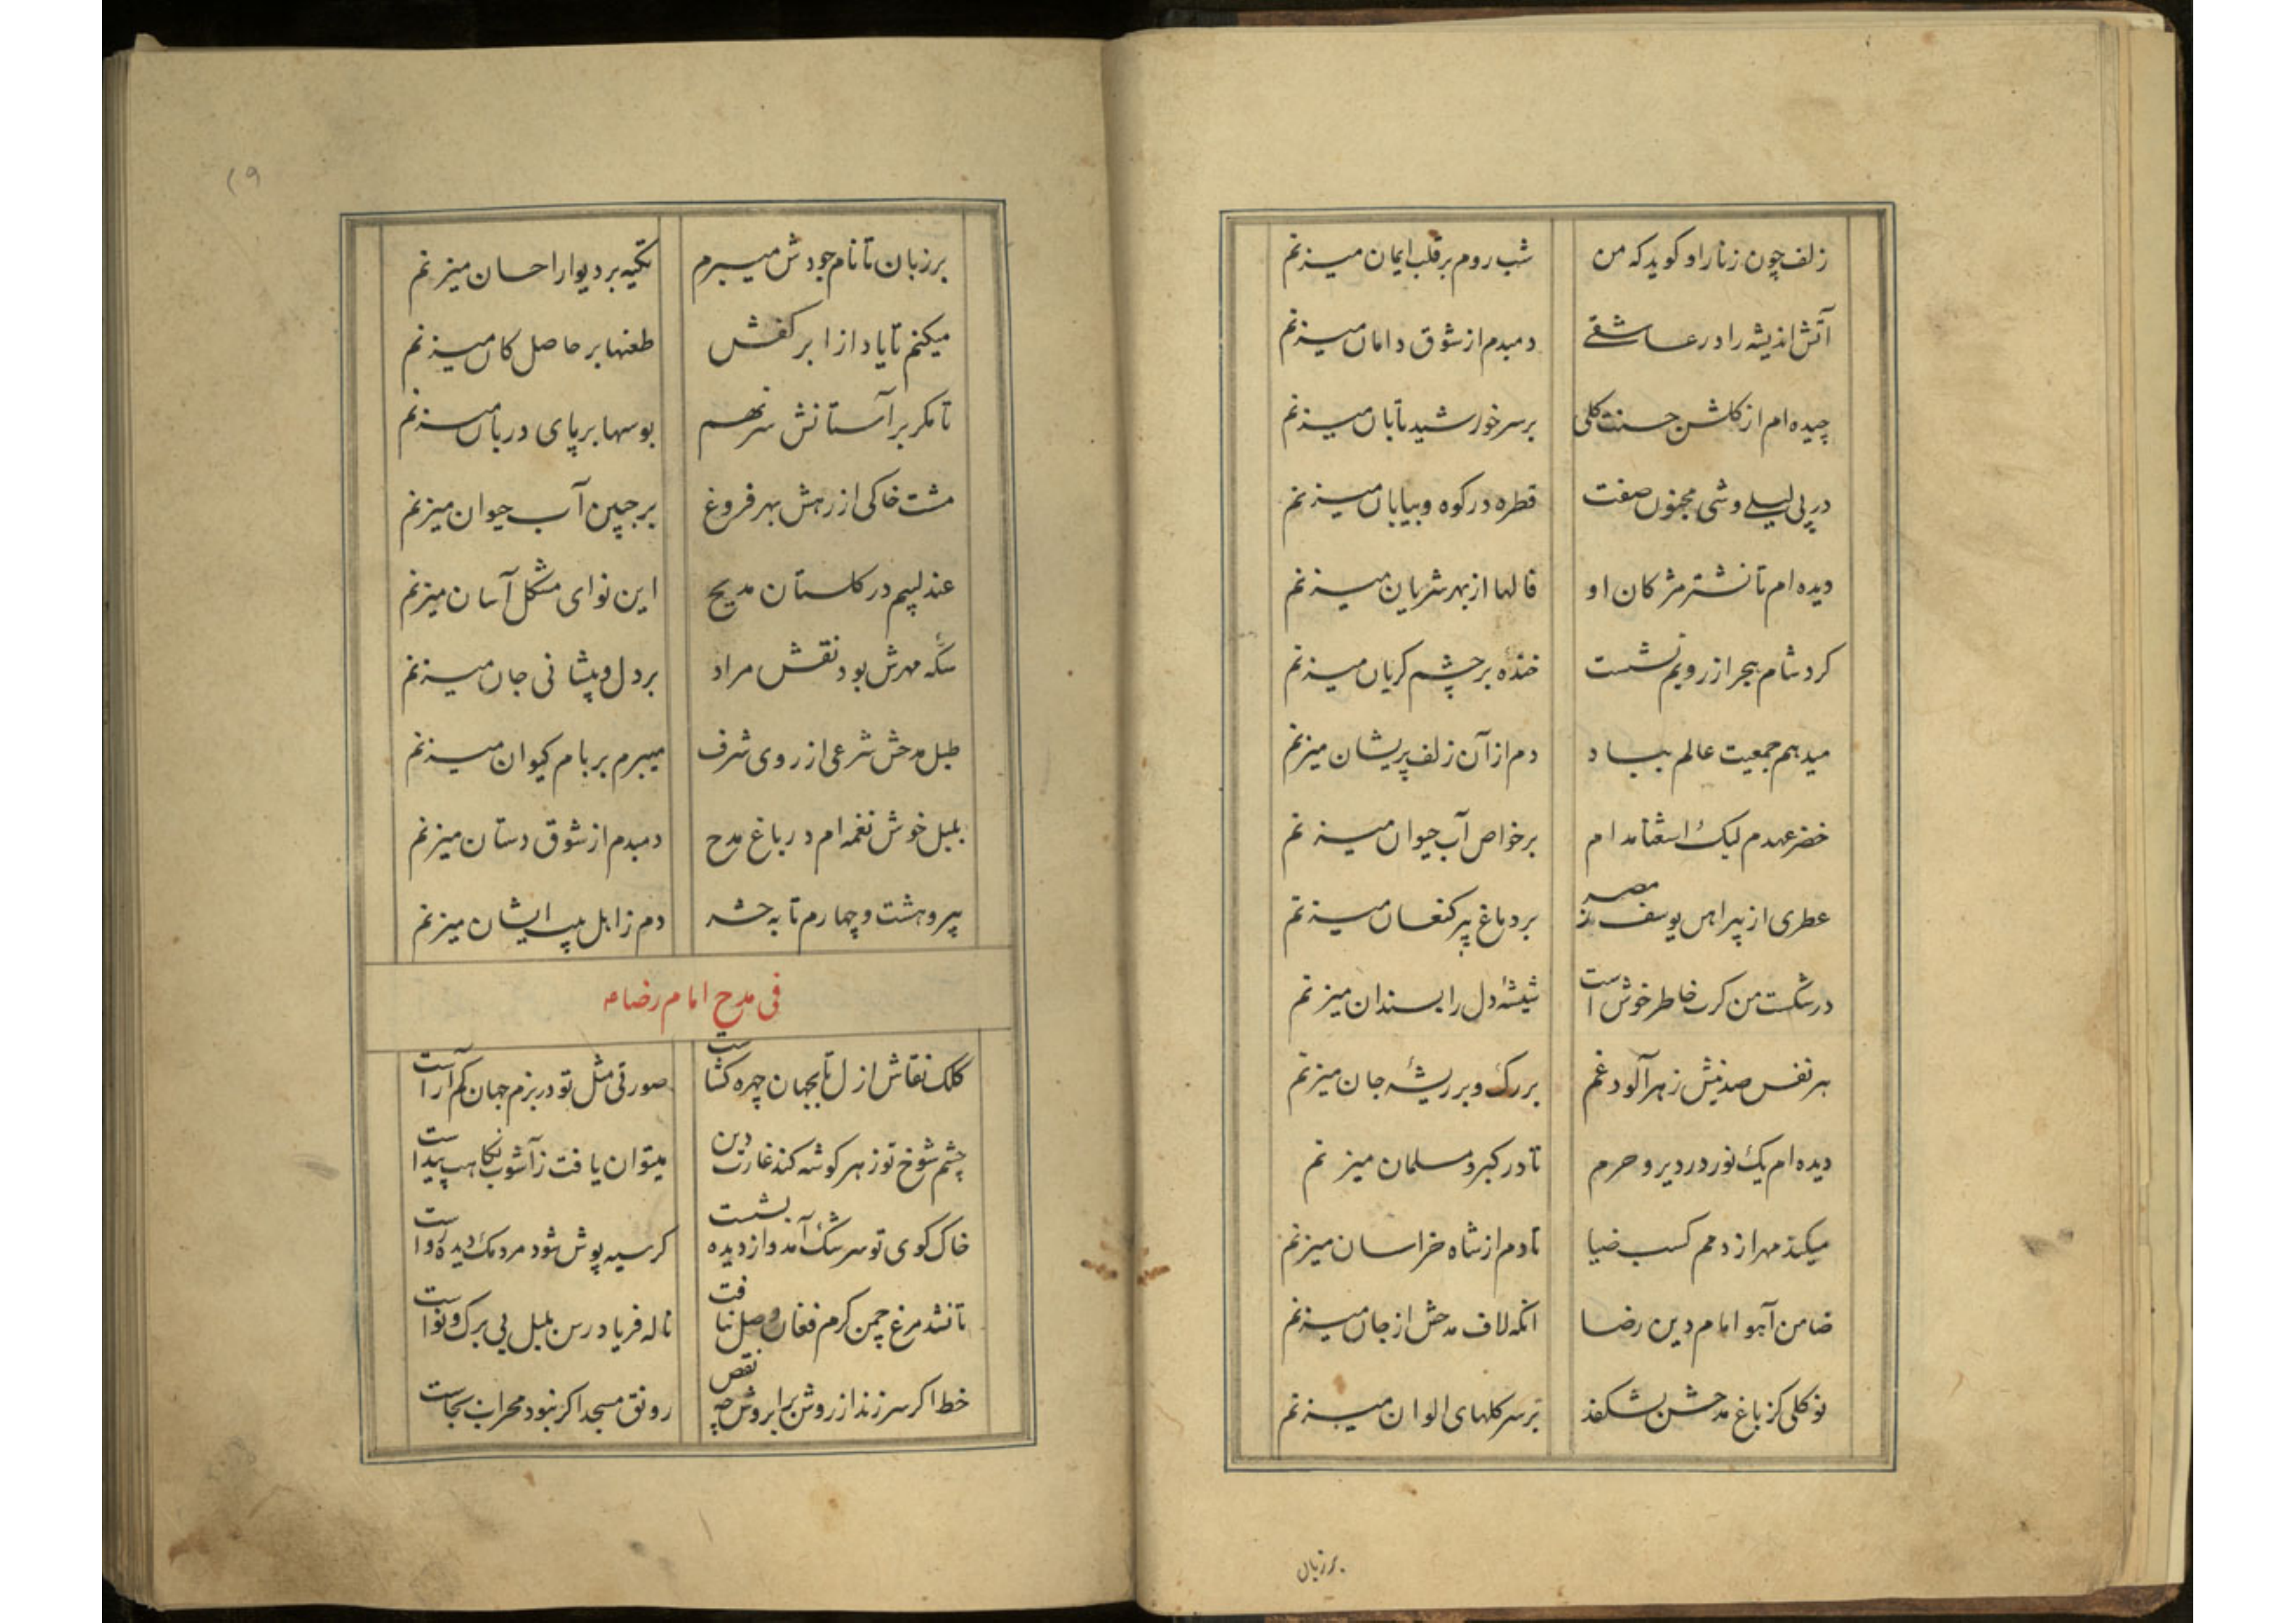 زلف چون زنار او گوید که من شب روم بر قلب ایمان میزنم
آتش اندیشه را در عاشقے دمبدم از شوق دامان میزنم
چیده ام از گلشن حسنت گلی بر سر خورشید تابان میزنم
در پی لیلے وشی مجنون صفت قطره در کوه و بیابان میزنم
دیده ام تا نشتر مژگان او فالها از بهر شریان میزنم
کرد شام هجر از رویم نشست خنده بر چشم گریان میزنم
میدهم جمعیت عالم بباد دم از آن زلف پریشان میزنم
خضر عهدم لیک استغنا مدام بر خواص آب حیوان میزنم
عطری از پیراهن یوسف مصر بر دماغ پیر کنعان میزنم
در شکست من کرت خاطر خوش است شیشهٔ دل را بسندان میزنم
هر نفس صد نیش زهرآلود غم بر رگ و بر ریشهٔ جان میزنم
دیده ام یک نور در دیر و حرم تا در گبر و مسلمان میزنم
میکند مهر از دمم کسب ضیا تا دم از شاه خراسان میزنم
ضامن آهو امام دین رضا انکه لاف مدحش از جان میزنم
نوگلی کز باغ مدحش بشکفد بر سر گلهای الوان میزنم
بر زبان
۱۹
بر زبان تا نام جودش میبرم تکیه بر دیوار احسان میزنم
میکنم تا یاد از ابر کفش طعنها بر حاصل کان میزنم
تا مگر بر آستانش سر نهم بوسها بر پای دربان میزنم
مشت خاکی از رهش بهر فروغ بر جبین آب حیوان میزنم
عندلیبم در گلستان مدیح این نوای مشکل آسان میزنم
سکهٔ مهرش بود نقش مراد بر دل و پیشانی جان میزنم
طبل مدحش شرعی از روی شرف میبرم بر بام کیوان میزنم
بلبل خوش نغمه ام در باغ مدح دمبدم از شوق دستان میزنم
پیرو هشت و چهارم تا به حشر دم ز اهل بیت ایشان میزنم
فی مدح امام رضا ع
کلک نقاش ازل تا بجهان چهره کشاست صورتی مثل تو در بزم جهان کم آراست
چشم شوخ تو ز هر گوشه کند غارت دین میتوان یافت ز آشوب نگاهت پیداست
خاک کوی تو سرشک آمد و از دیده بشست گر سیه پوش شود مردمک دیده رواست
تا نشد مرغ چمن گرم فغان وصل نیافت ناله فریادرس بلبل بی برگ و نواست
خط اگر سر زند از روش بر ابروش چه نقص رونق مسجد اگر نبود محراب بجاست